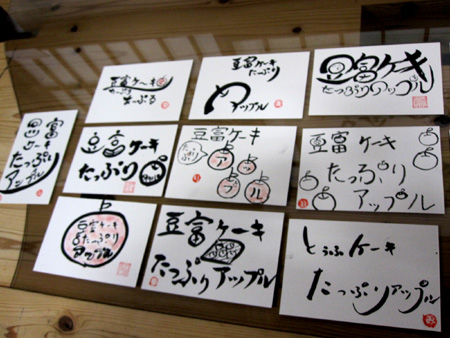 豆富ケーキ
たっぷり
あっぷる
豆富ケーキ
たっぷり
アップル
豆富ケーキ
たっぷりアップル
豆富
ケーキ
たっぷり
アップル
豆富ケーキ
たっぷり
豆富ケーキ
たっぷり
アップル
豆富ケーキ
たっぷり
アップル
豆富ケーキ
たっぷり
アップル
豆富ケーキ
たっぷりアップル
とうふケーキ
たっぷりアップル